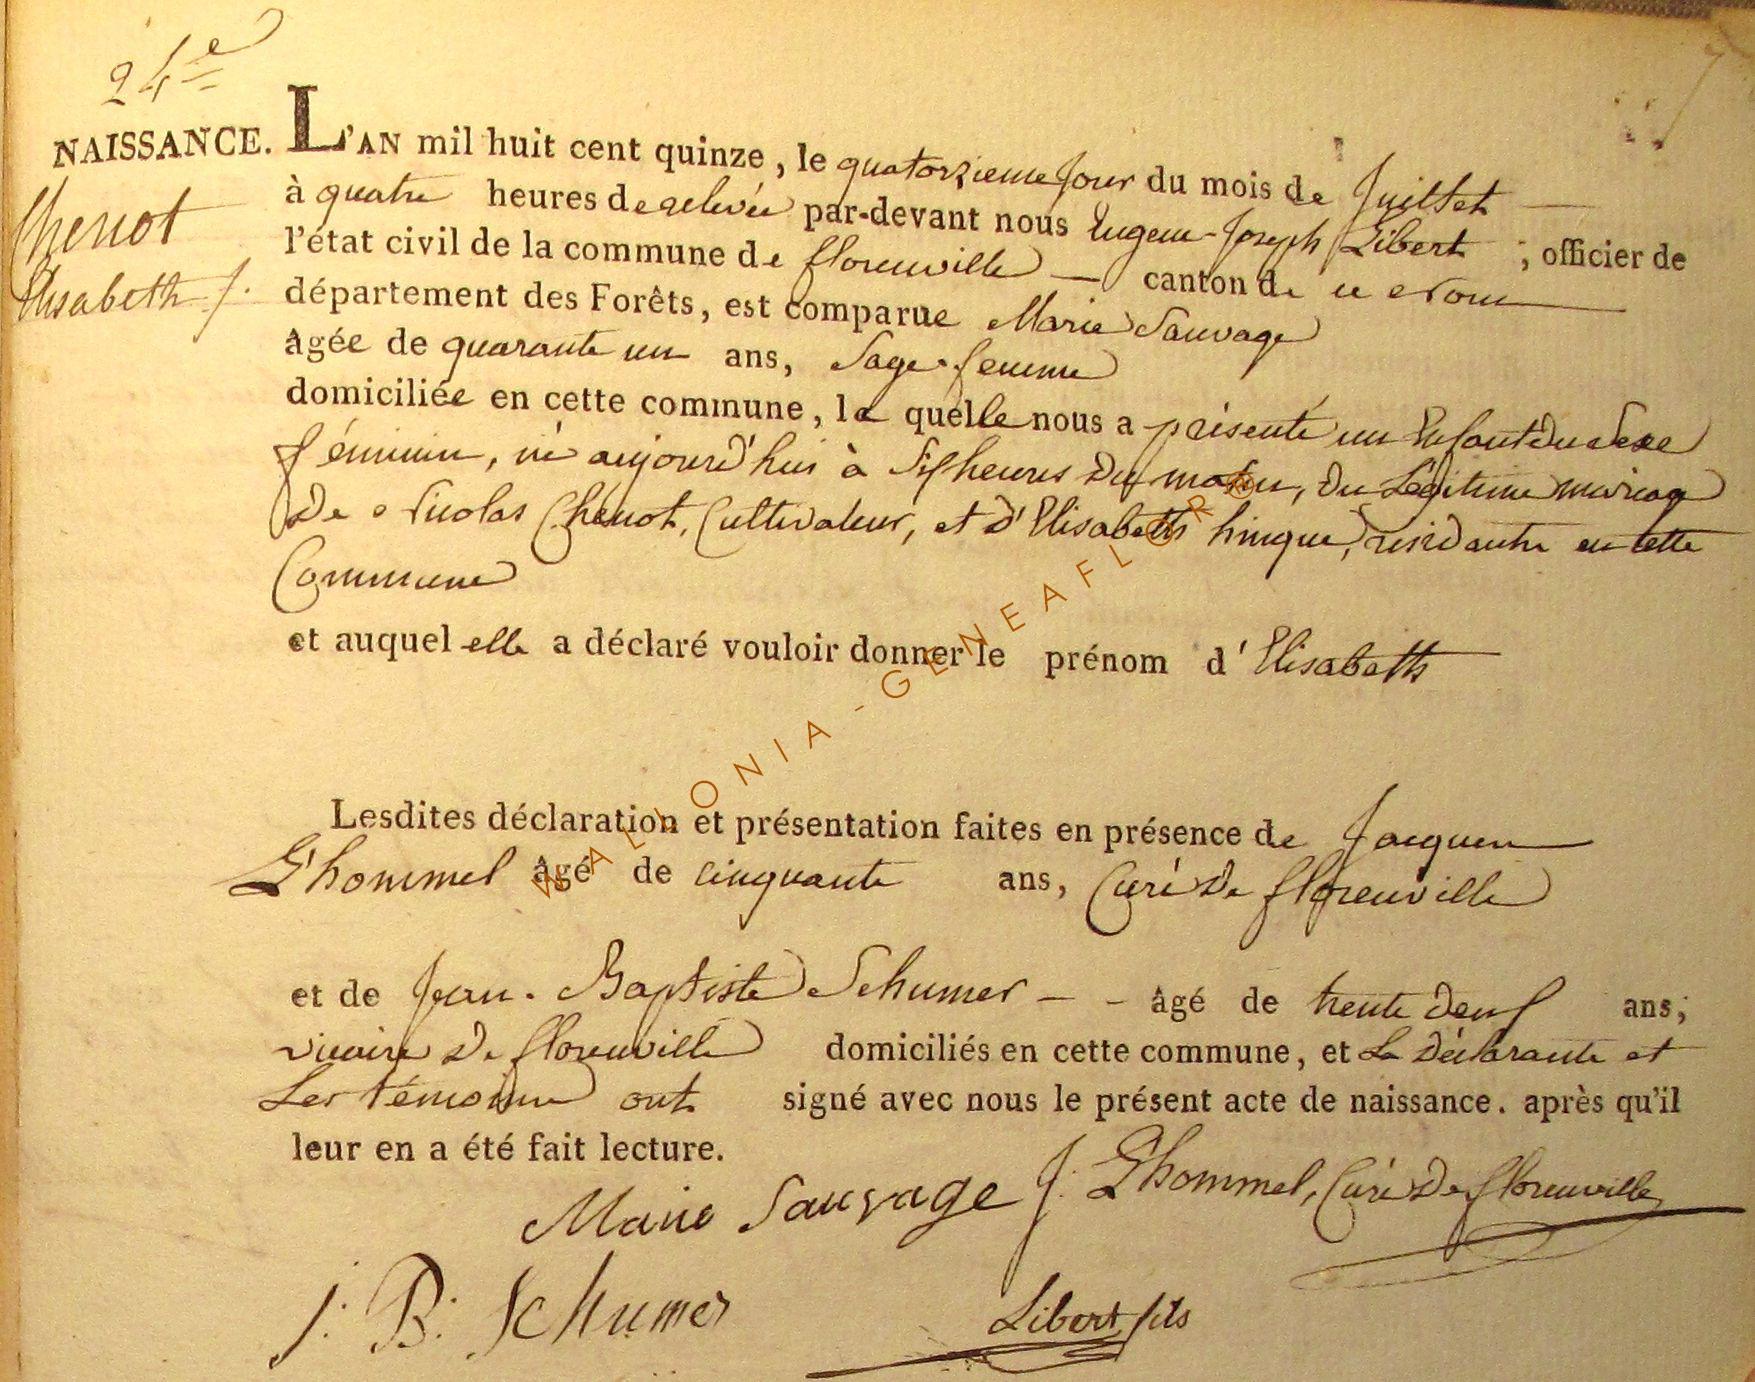 24e
NAISSANCE. L'AN mil huit cent quinze, le quatorzieme jour du mois de Juillet
Chenot
Elisabeth f.
à quatre heures de relevée par-devant nous Eugene-Joseph Libert ; officier de
l'état civil de la commune de florenville canton de
département des Forêts, est comparue Marie Sauvage
âgée de quarante un ans, Sage-femme
domiciliée en cette commune, la quelle nous a présenté un Enfant du Sexe
féminin, né aujourd'hui à Six heures du matin, du Légitime mariage
De Nicolas Chenot, Cultivateur, et d'Elisabeth hinque, residante en cette
Commune
et auquel elle a déclaré vouloir donner le prénom d'Elisabeth
WALLONIA-GENEAFLOR©
Lesdites déclaration et présentation faites en présence de Jacques
L'hommel âgé de cinquante ans, Curé de florenville
et de Jean-Baptiste Schumer - - âgé de trente deux ans;
vicaire de florenville domiciliés en cette commune, et La Déclarante et
Les témoins ont signé avec nous le présent acte de naissance. après qu'il
leur en a été fait lecture.
Marie Sauvage J. L'hommel, Curé de florenville
j. B. Schumer
Libert fils